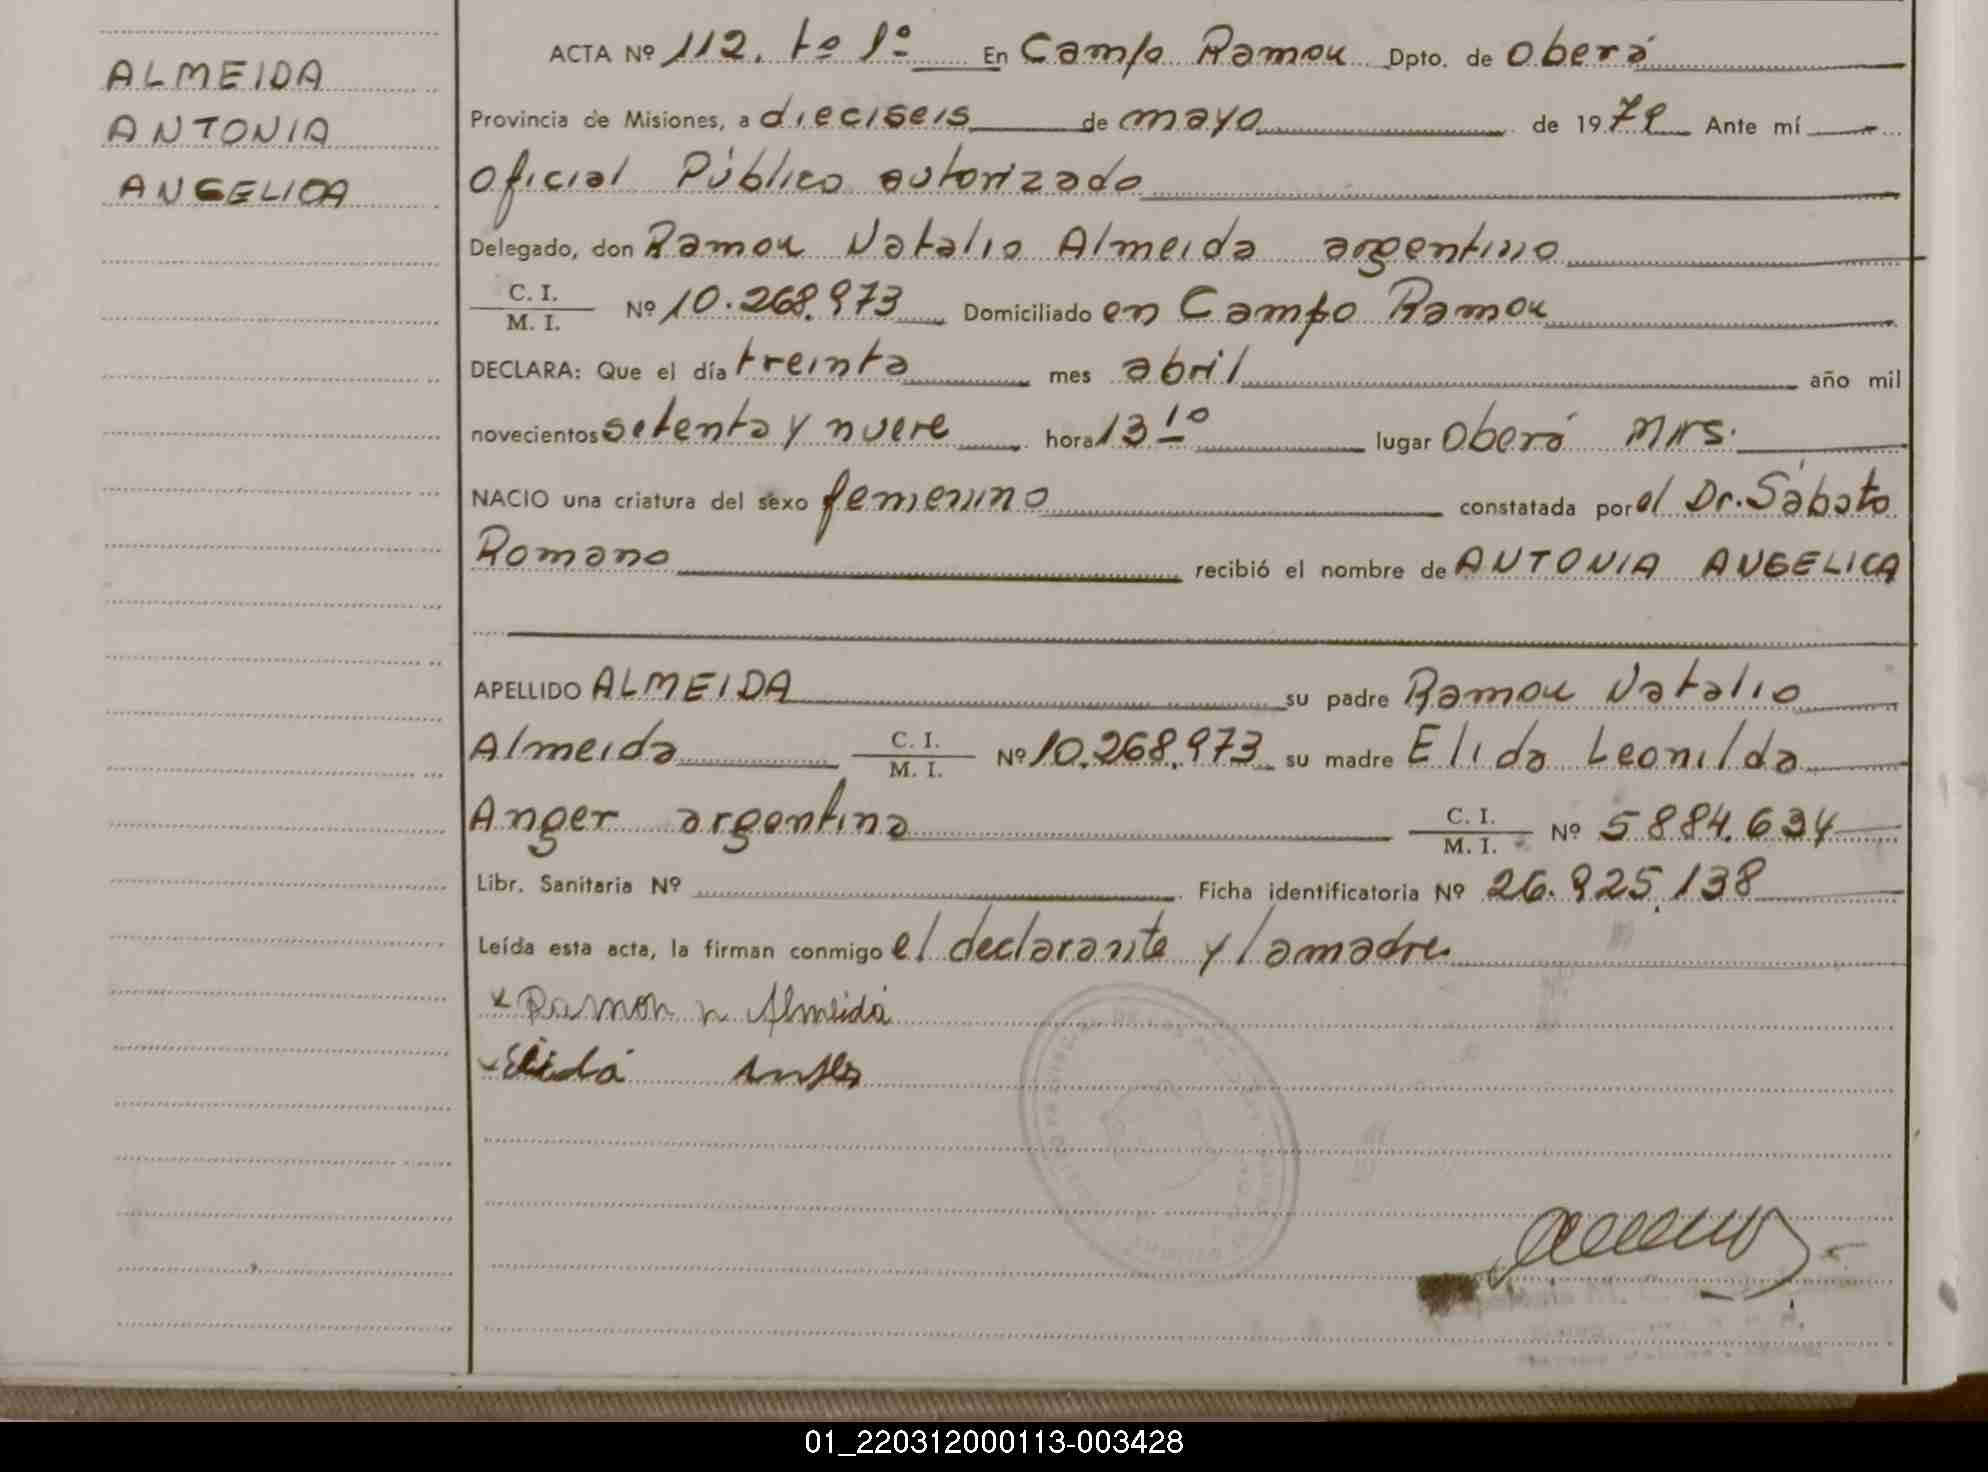 ALMEIDA
ANTONIA
ANGELICA
ACTA Nº 112. tº 1º En Campo Ramon Dpto. de Oberá
Provincia de Misiones, a dieciseis de mayo de 1979 Ante mí
Oficial Público autorizado
Delegado, don Ramon Natalio Almeida argentino
C. I.
M. I. Nº 10.268.973 Domiciliado en Campo Ramon
DECLARA: Que el día treinta mes abril año mil
novecientos setenta y nueve hora 13 10 lugar Oberá Mns.
NACIO una criatura del sexo femenino constatada por el Dr. Sábato
Romano recibió el nombre de ANTONIA ANGELICA
APELLIDO ALMEIDA su padre Ramon Natalio
Almeida C. I.
M. I. Nº 10.268.973 su madre Elida Leonilda
Anger argentina C. I.
M. I. Nº 5884.634
Libr. Sanitaria Nº Ficha identificatoria Nº 26.925.138
Leída esta acta, la firman conmigo el declarante y la madre
x Ramon n Almeida
Elida Anger
01_220312000113-003428